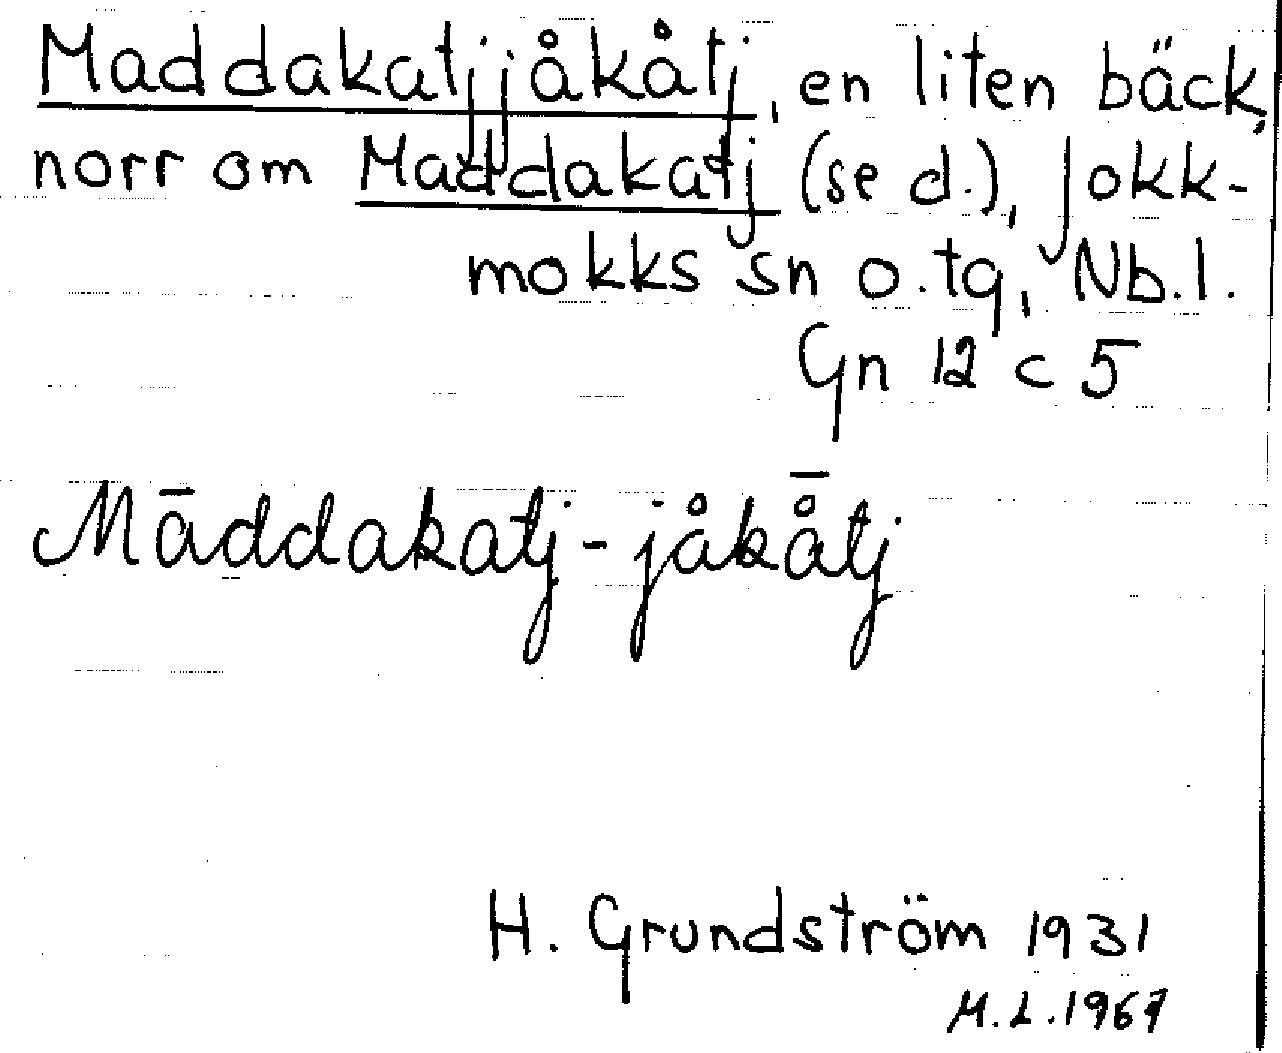 Maddakatjjåkåtj, en liten bäck,
norr om Maddakatj (se d.), Jokk-
mokks sn o. tg, Nb. l.
Gn 12 c 5
Māddakatj-jåkå̄tj
H. Grundström 1931
M.L. 1967